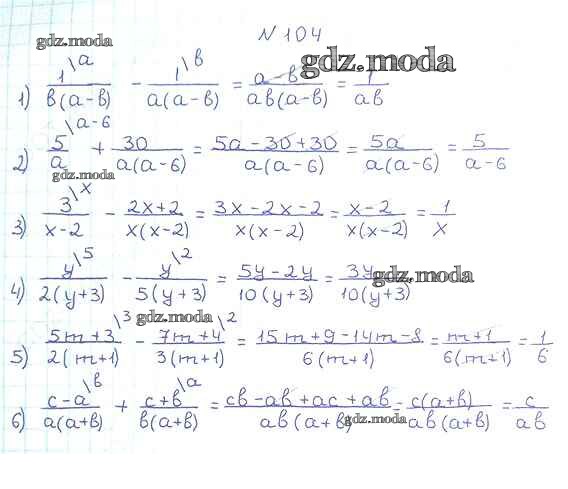 N 104
gdz.moda
gdz.moda
1) 1\a/b(a-b) - 1\b/a(a-b) = a-b/ab(a-b) = 1/ab
2) 5\a-6/a + 30/a(a-6) = 5a-30+30/a(a-6) = 5a/a(a-6) = 5/a-6
gdz.moda
3) 3\x/x-2 - 2x+2/x(x-2) = 3x-2x-2/x(x-2) = x-2/x(x-2) = 1/x
4) y\5/2(y+3) - y\2/5(y+3) = 5y-2y/10(y+3) = 3y/10(y+3)
gdz.moda
gdz.moda
5) 5m+3\3/2(m+1) - 7m+4\2/3(m+1) = 15m+9-14m-8/6(m+1) = m+1/6(m+1) = 1/6
6) c-a\b/a(a+b) + c+b\a/b(a+b) = cb-ab+ac+ab/ab(a+b) = c(a+b)/ab(a+b) = c/ab
gdz.moda